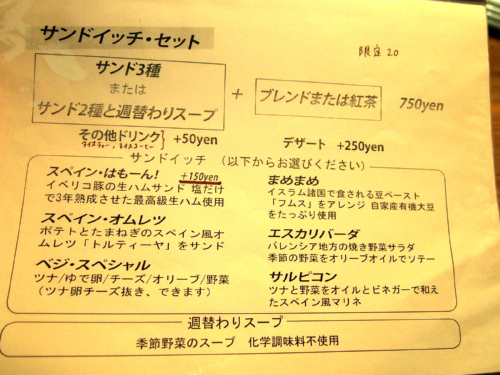 サンドイッチ・セット
限定20
サンド3種
または
サンド2種と週替わりスープ
+
ブレンドまたは紅茶
750yen
その他ドリンク} +50yen
アイスティー、アイスコーヒー
デザート +250yen
サンドイッチ (以下からお選びください)
スペイン・はもーん! +150yen
イベリコ豚の生ハムサンド 塩だけ
で3年熟成させた最高級生ハム使用
スペイン・オムレツ
ポテトとたまねぎのスペイン風オ
ムレツ「トルティーヤ」をサンド
ベジ・スペシャル
ツナ/ゆで卵/チーズ/オリーブ/野菜
(ツナ卵チーズ抜き、できます)
まめまめ
イスラム諸国で食される豆ペースト
「フムス」をアレンジ 自家産有機大豆
をたっぷり使用
エスカリバーダ
バレンシア地方の焼き野菜サラダ
季節の野菜をオリーブオイルでソテー
サルピコン
ツナと野菜をオイルとビネガーで和え
たスペイン風マリネ
週替わりスープ
季節野菜のスープ 化学調味料不使用